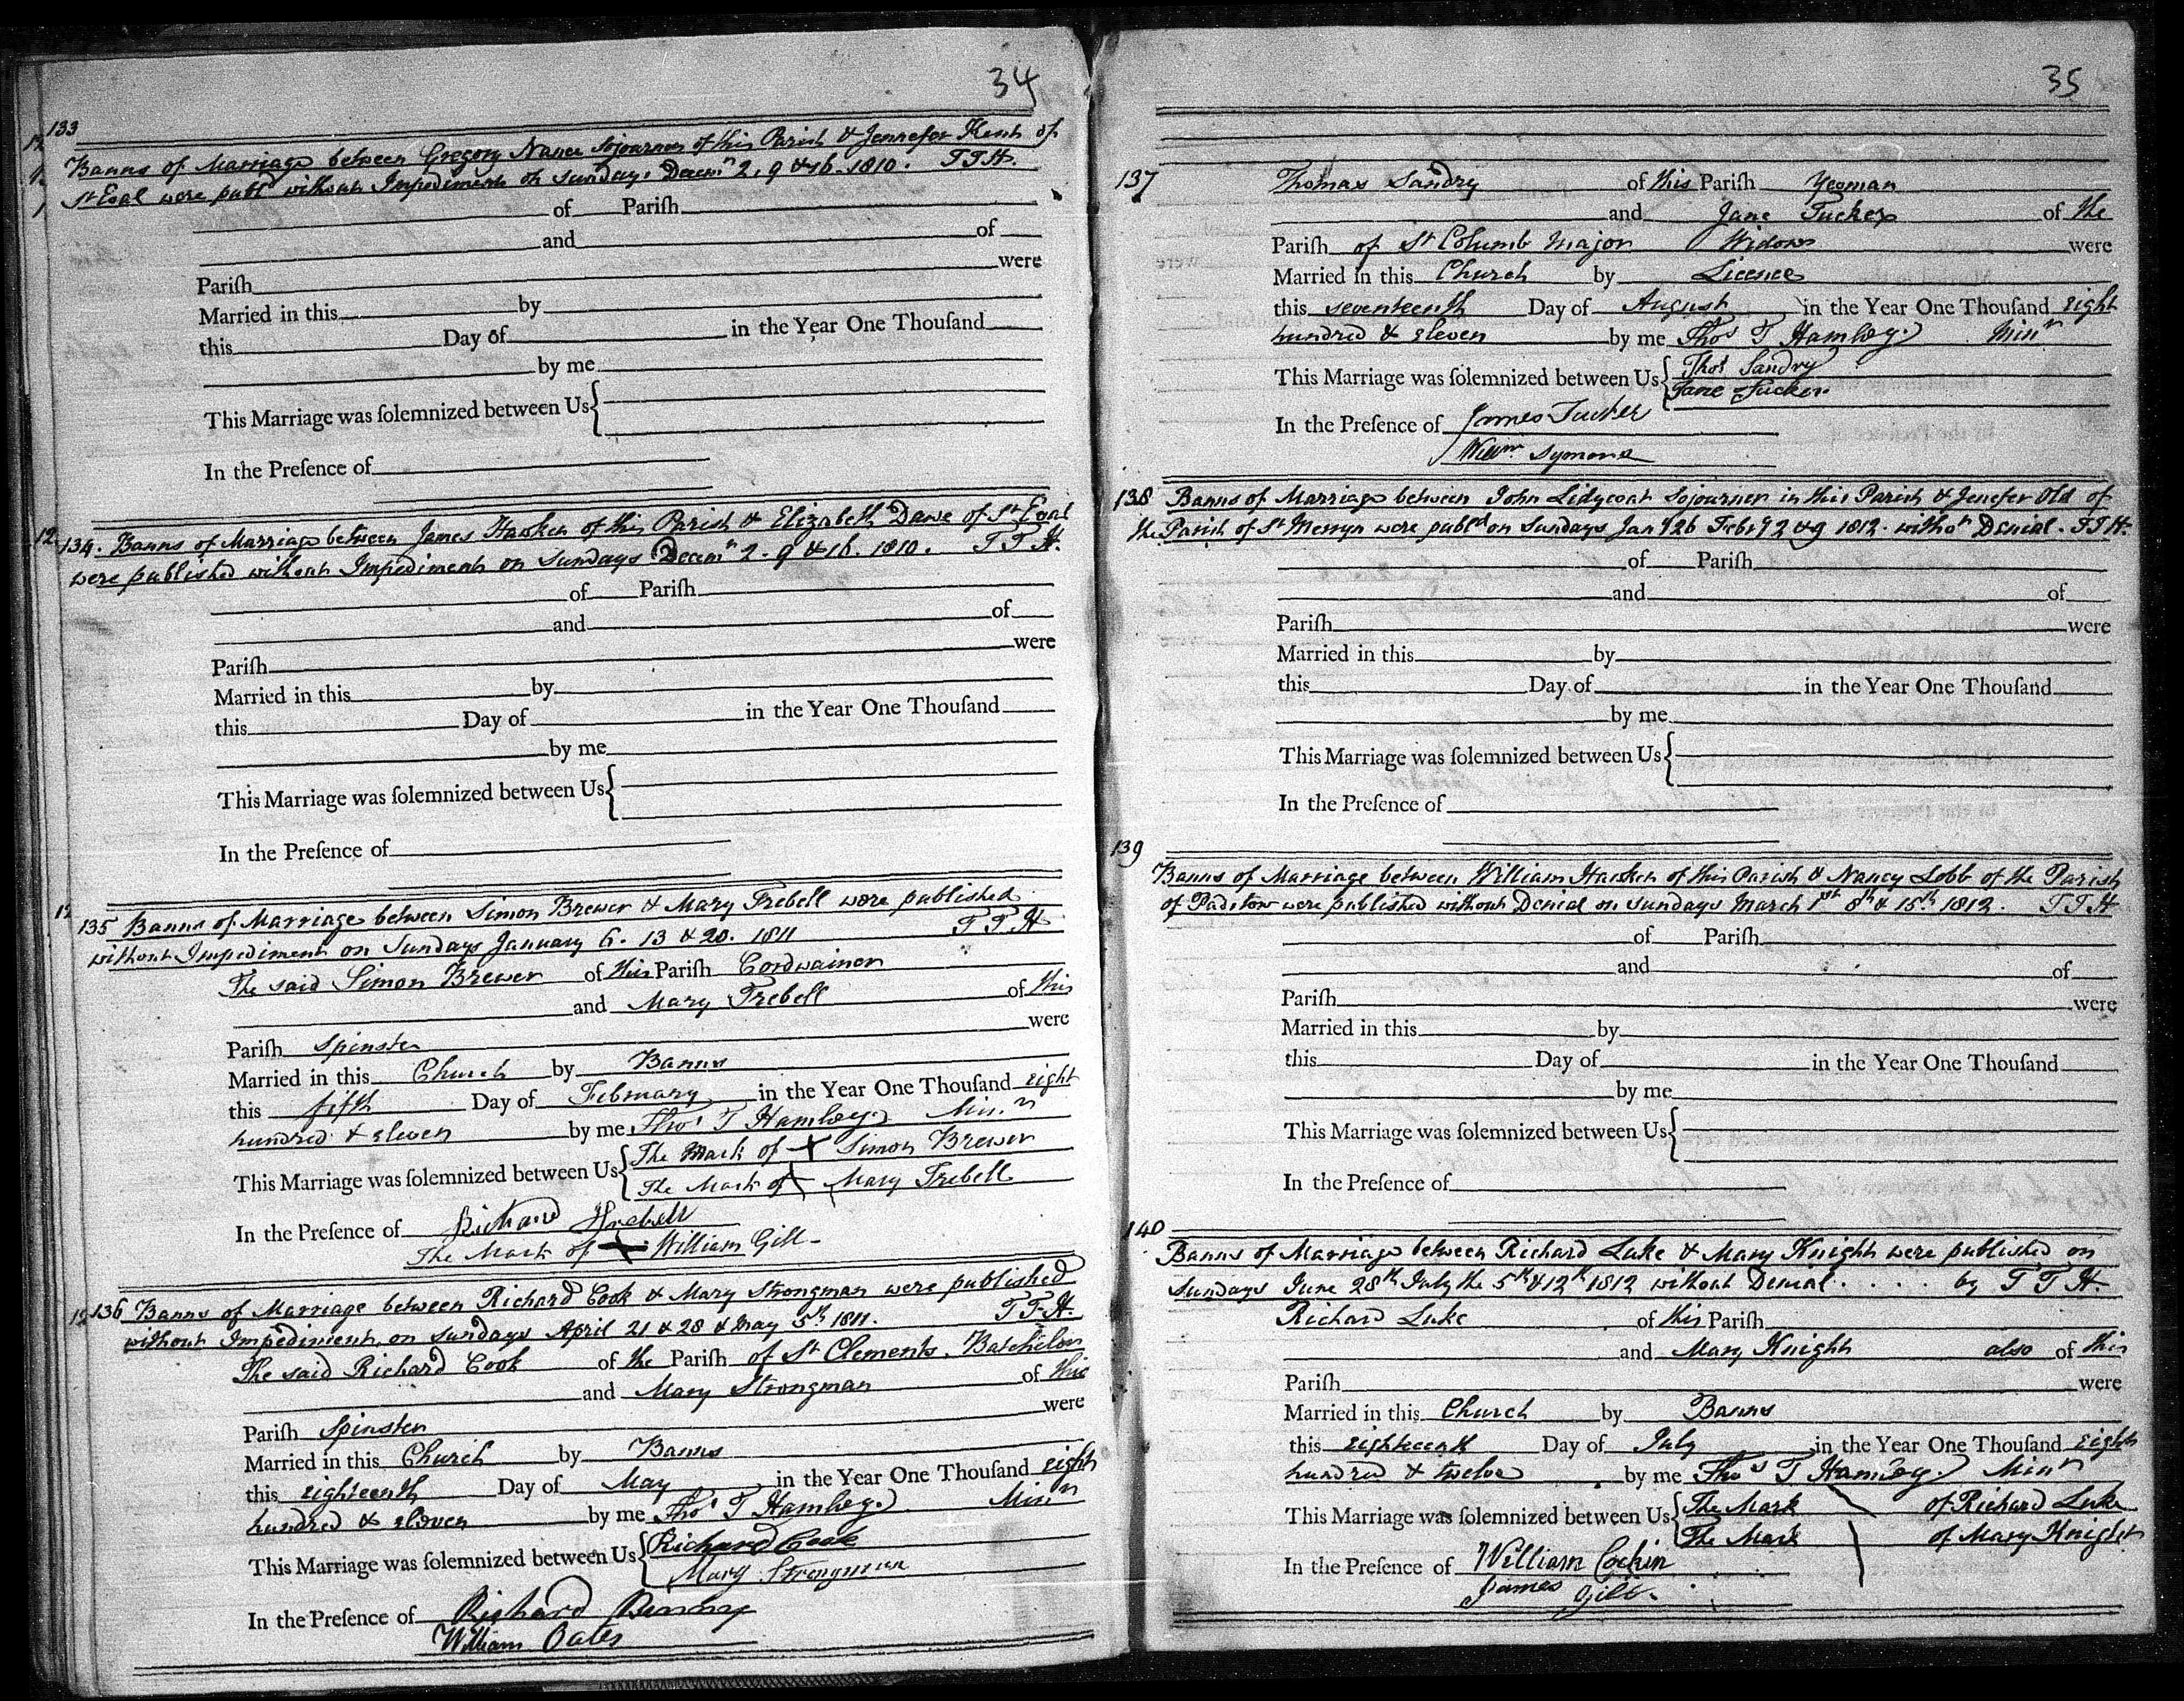 34
133
Banns of Marriage between Gregory Nance Sojourner of this Parish & Jennefer Kent of
St Eval were publd without Impediment on Sundays Decemr 2, 9 & 16. 1810. T T H.
of Pariſh
and of
Pariſh were
Married in this by
this Day of in the Year One Thouſand
by me
This Marriage was ſolemnized between Us
In the Preſence of
134. Banns of Marriage between James Hawken of this Parish & Elizabeth Dawe of St Eval
were published without Impediment on Sundays Decemr 2. 9 & 16. 1810. T T H.
of Pariſh
and of
Pariſh were
Married in this by
this Day of in the Year One Thouſand
by me
This Marriage was ſolemnized between Us
In the Preſence of
135 Banns of Marriage between Simon Brewer & Mary Trebell were published
without Impediment on Sundays January 6. 13 & 20. 1811 T T H
The said Simon Brewer of this Pariſh Cordwainer
and Mary Trebell of this
Pariſh Spinster were
Married in this Church by Banns
this fifth Day of February in the Year One Thouſand eight
hundred & eleven by me Thos T Hamley Minr
This Marriage was ſolemnized between Us The Mark of + Simon Brewer
The Mark of Mary Trebell
In the Preſence of Richard Trebell
The Mark of + William Gill
136 Banns of Marriage between Richard Cook & Mary Strongman were published
without Impediment on Sundays April 21 & 28 & May 5th 1811. T T H.
The said Richard Cook of the Pariſh of St Clements Batchelor
and Mary Strongman of this
Pariſh Spinster were
Married in this Church by Banns
this eighteenth Day of May in the Year One Thouſand eight
hundred & eleven by me Thos T Hamley Minr
This Marriage was ſolemnized between Us Richard Cook
Mary Strongman
In the Preſence of Richard
William Oates
35
137 Thomas Sandry of this Pariſh Yeoman
and Jane Tucker of the
Pariſh of St Columb Major Widow were
Married in this Church by Licence
this seventeenth Day of August in the Year One Thouſand eight
hundred & eleven by me Thos T Hamley Minr
This Marriage was ſolemnized between Us Thos Sandry
Jane Tucker
In the Preſence of James Tucker
Willm Symons
138 Banns of Marriage between John Lidycoat Sojourner in this Parish & Jenefer Old of
the Parish of St Merryn were publd on Sundays Jany 26 Feby 2 & 9 1812. withot Denial. T T H.
of Pariſh
and of
Pariſh were
Married in this by
this Day of in the Year One Thouſand
by me
This Marriage was ſolemnized between Us
In the Preſence of
139
Banns of Marriage between William Hawken of this Parish & Nancy Lobb of the Parish
of Padstow were published without Denial on Sundays March 1st 8th & 15th 1812. T T H
of Pariſh
and of
Pariſh were
Married in this by
this Day of in the Year One Thouſand
by me
This Marriage was ſolemnized between Us
In the Preſence of
140
Banns of Marriage between Richard Luke & Mary Knight were published on
Sundays June 28th July the 5th & 12th 1812 without Denial . . . . by T T H.
Richard Luke of this Pariſh
and Mary Knight also of this
Pariſh were
Married in this Church by Banns
this eighteenth Day of July in the Year One Thouſand eight
hundred & twelve by me Thos T Hamley Minr
This Marriage was ſolemnized between Us The Mark of Richard Luke
The Mark of Mary Knight
In the Preſence of William Cockin
James Gill.